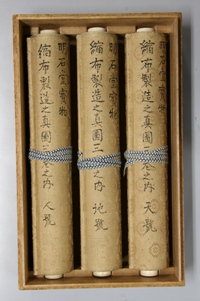 明石堂寶物
縮布製造之真圖三巻之内 天號
明石堂寶物
縮布製造之真圖三巻之内 地號
明石堂寶物
縮布製造之真圖三巻之内 人號